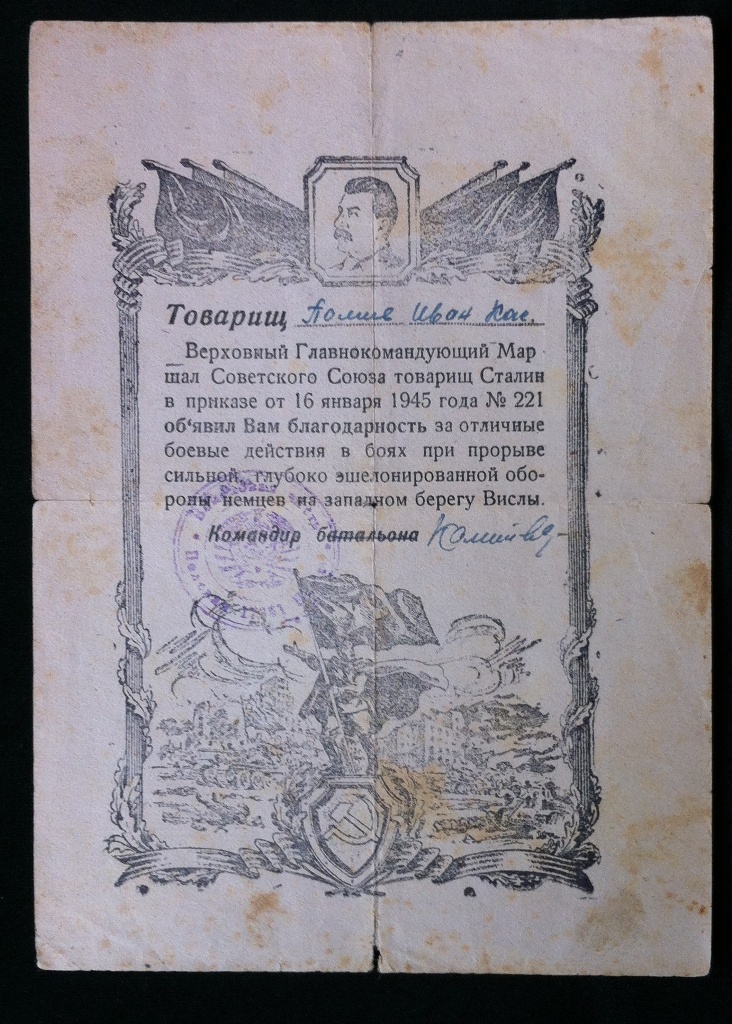 Товарищ Иван
Верховный Главнокомандующий Мар
шал Советского Союза товарищ Сталин
в приказе от 16 января 1945 года № 221
об‘явил Вам благодарность за отличные
боевые действия в боях при прорыве
сильной, глубоко эшелонированной обо-
роны немцев на западном берегу Вислы.
Командир батальона